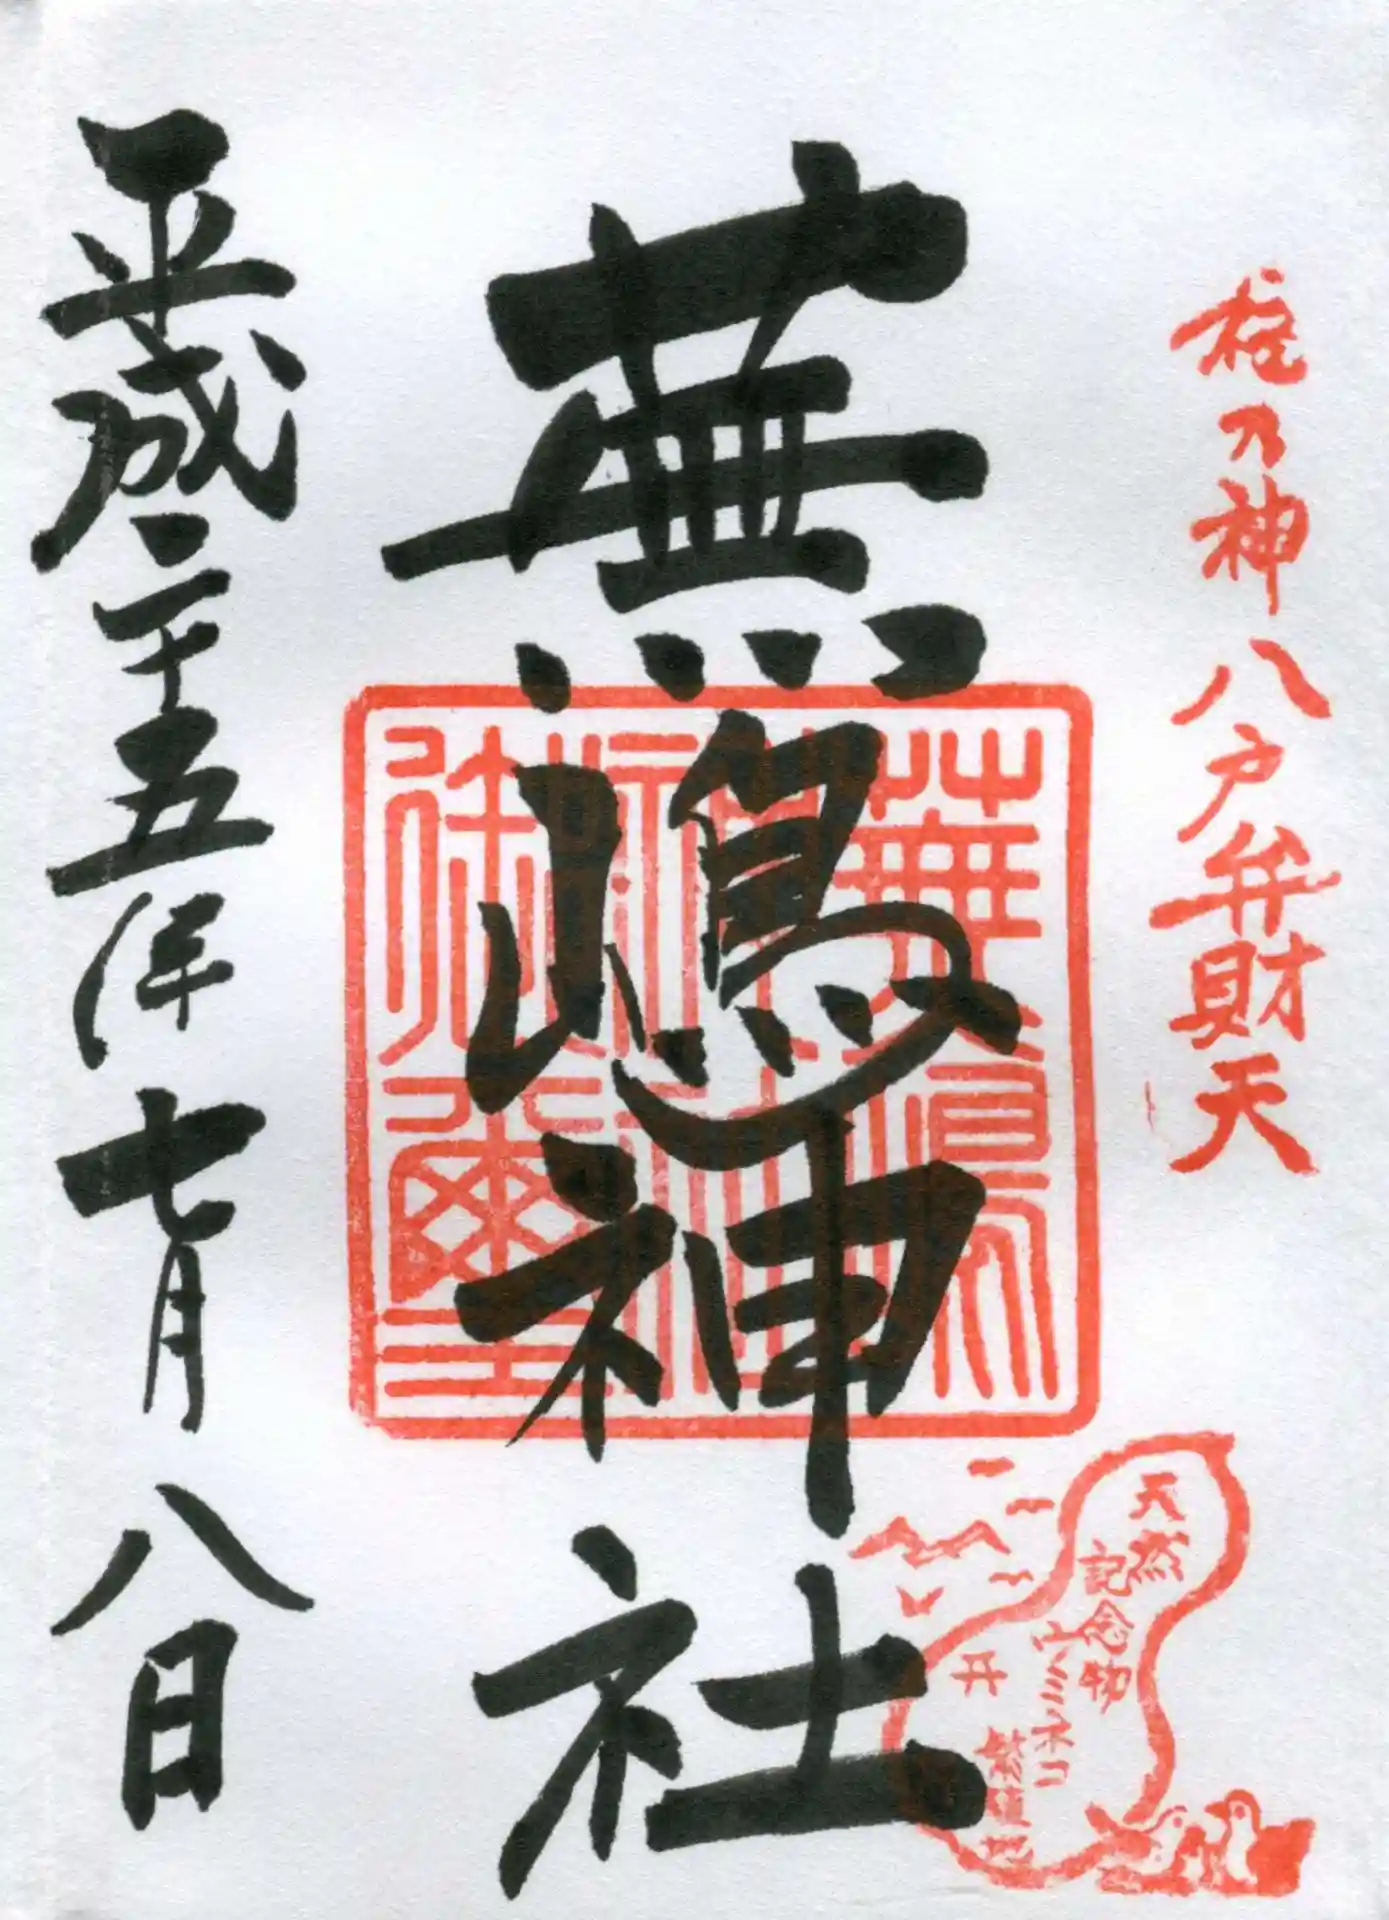 桂乃神八戸弁財天
蕪嶋神社
蕪嶋
神社
御璽
平成二十五年七月八日
天然
記念物
ウミネコ
繁殖地